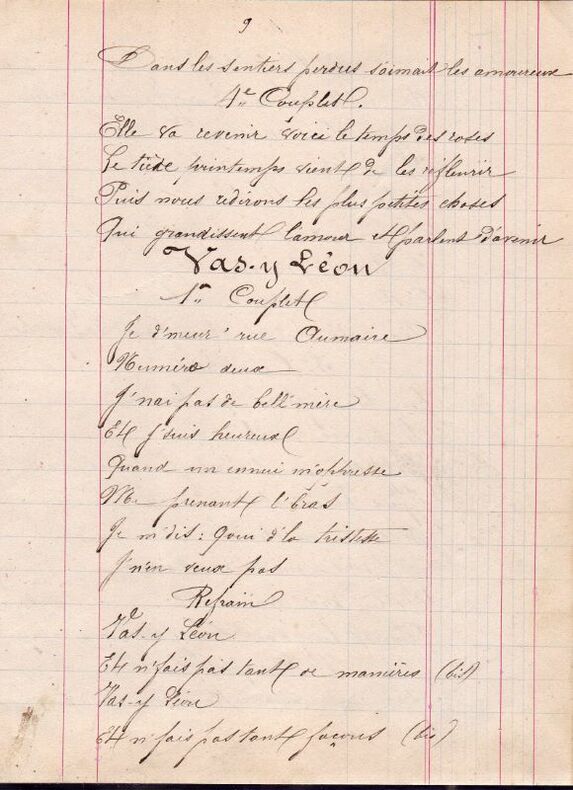 9
Dans les sentiers perdus s'aimait les amoureux
4e Couplet.
Elle va revenir voici le temps des roses
Le tiède printemps vient de les refleurir
Puis nous redirons les plus petites choses
Qui grandissent l'amour et parlent d'avenir
Vas-y Léon
1er Couplet
Je d'meur' rue Aumaire
Numéro deux
J'nai pas de bell'mère
Et j'suis heureux
Quand un ennui m'oppresse
Me prenant l'bras
Je m'dis: Quoi d'la tristesse
J'n'en veux pas
Refrain
Vas-y Léon
Et n'fais pas tant de manières (bis)
Vas-y Léon
Et n'fais pas tant façons (bis)